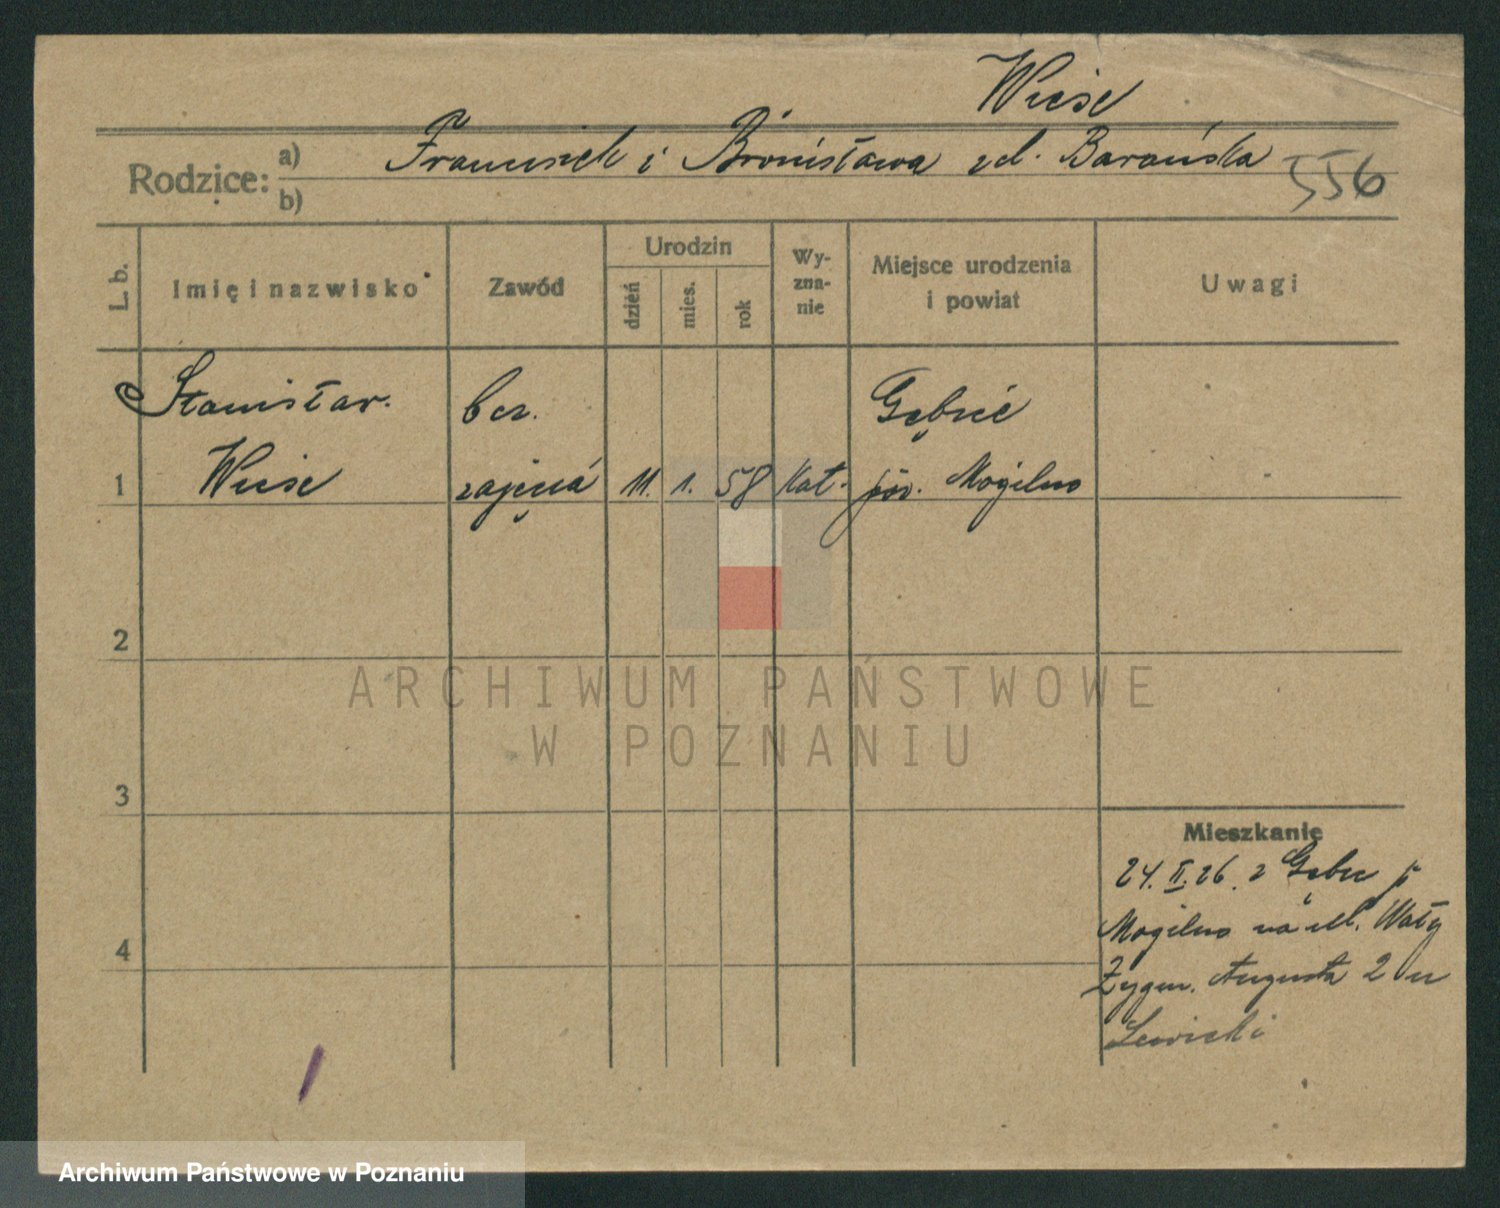 Wiese
Rodzice: a) Franciszek i Bronisława zd. Barańska
b)
556
L. b.
Imię i nazwisko
Zawód
Urodzin
dzień
mies.
rok
Wy-
zna-
nie
Miejsce urodzenia
i powiat
Uwagi
Stanisław. bez. Gębice
1 Wiese zajęcia 11. 1. 58 Kat. pow. Mogilno
2
ARCHIWUM PAŃSTWOWE
W POZNANIU
3
Mieszkanie
24. II. 26. z Gębic p
Mogilno na ul. Wały
4
Zygm. Augusta 2 u
Lewicki
Archiwum Państwowe w Poznaniu